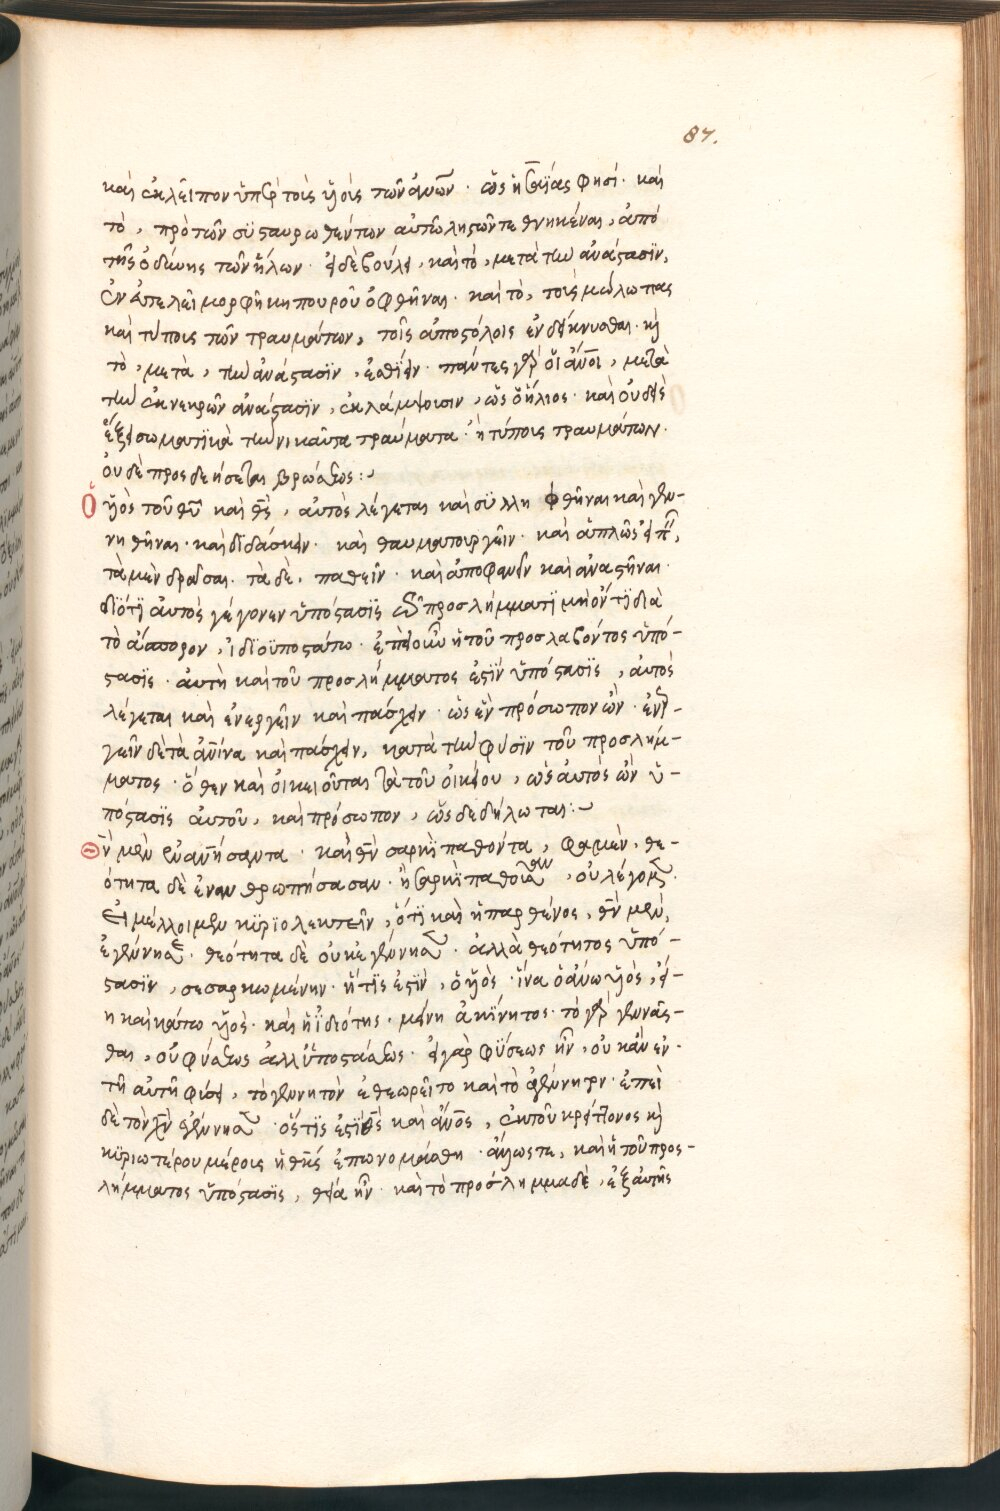 87.
καὶ ἐκλεῖπον ὑπὲρ τοὺς υἱοὺς τῶν ἀνων · ὡς ἡσαΐας φησί · καὶ
τὸ, πρὸ τῶν συσταυρωθέντων αὐτῶ ληστῶν τεθνηκέναι, ἀπὸ
τῆς ὀδύνης τῶν ἥλων · εἰ δὲ βούλει, καὶ τὸ, μετὰ τὴν ἀνάστασιν,
ἐν εὐτελεῖ μορφῆ κηπουροῦ ὀφθῆναι · καὶ τὸ, τοὺς μώλωπας
καὶ τύπους τῶν τραυμάτων, τοῖς ἀποστόλοις ἐνδείκνυσθαι · κὴ
τὸ, μετὰ, τὴν ἀνάστασιν, ἐσθίειν · πάντες γὰρ οἱ ἀνοι, μετὰ
τὴν ἐκ νεκρῶν ἀνάστασιν, ἐκλάμψουσιν, ὡς ὁ ἥλιος · καὶ οὐδεὶς
ἕξει σωματικὰ τηνικαῦτα τραύματα · ἢ τύπους τραυμάτων ·
οὐδὲ προσδεήσεται βρώσεως :~
Ὁ υἱὸς τοῦ θυ καὶ θς, αὐτὸς λέγεται καὶ συλληφθῆναι καὶ γεν-
νηθῆναι · καὶ διδάσκειν · καὶ θαυματουργεῖν · καὶ ἁπλῶς εἰπεῖν,
τὰ μὲν δρᾶσαι · τὰ δὲ, παθεῖν · καὶ ἀποθανεῖν καὶ ἀναστῆναι ·
διότι αὐτὸς γέγονεν ὑπόστασις τῶ προσλήμματι μὴ ὄντι διὰ
τὸ ἄπορον, ἰδιοϋποστάτω · ἐπεὶ οὖν ἡ τοῦ προσλαβόντος ὑπό-
στασις · αὐτὴ καὶ τοῦ προσλήμματος ἐστὶν ὑπόστασις, αὐτὸς
λέγεται καὶ ἐνεργεῖν καὶ πάσχειν · ὡς ἓν πρόσωπον ὢν · ἐνερ-
γεῖν δὲ τὰ ἀνινα καὶ πάσχειν, κατὰ τὴν φύσιν τοῦ προσλήμ-
ματος · ὅθεν καὶ οἰκειοῦται τὰ τοῦ οἰκείου, ὡς αὐτὸς ὢν ὑ-
πόστασις αὐτοῦ, καὶ πρόσωπον, ὡς δεδήλωται :~
Θν μὲν ἐνανήσαντα · καὶ θν σαρκὶ παθόντα, φαμὲν, θε-
ότητα δὲ ἐνανθρωπήσασαν · ἢ σαρκὶ παθοῦσαν, οὐ λέγομεν ·
Εἰ μέλλοιμεν κυριολεκτεῖν, ὅτι καὶ ἡ παρθένος, θν μὲν,
ἐγέννησε · θεότητα δὲ οὐκ ἐγέννησεν · ἀλλὰ θεότητος ὑπό-
στασιν, σεσαρκωμένην · ἥτις ἐστὶν, ὁ υἱὸς · ἵνα ὁ ἄνω υἱὸς, εἴ-
η καὶ κάτω υἱὸς · καὶ ἡ ἰδιότης, μένη ἀκίνητος · τὸ γὰρ γεννᾶς-
θαι, οὐ φύσεως ἀλλ' ὑποστάσεως · εἰ γὰρ φύσεως ἦν, οὐκ ἂν ἐν ·
τῆ αὐτῆ φύσει, τὸ γεννητὸν ἐθεωρεῖτο καὶ τὸ ἀγέννητον · ἐπεὶ
δὲ τὸν χν ἐγέννησεν · ὅστις ἐστὶ θς καὶ ἀνος, ἐκ τοῦ κρείττονος κὴ
κυριωτέρου μέρους ἡ θκς ἐπωνομάσθη · ἄλλως τε, καὶ ἡ τοῦ προς-
λήμματος ὑπόστασις, θεία ἦν · καὶ τὸ πρόσλημμα δὲ, ἐξ αὐτῆς